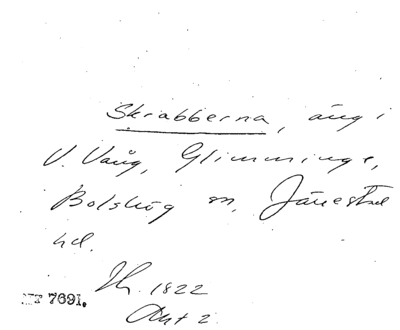 Skrabberna, äng i
V. Vång, Glimminge,
Bolshög sn, Järrestad
hd.
Th. 1822
Akt 2.
NT 7691.